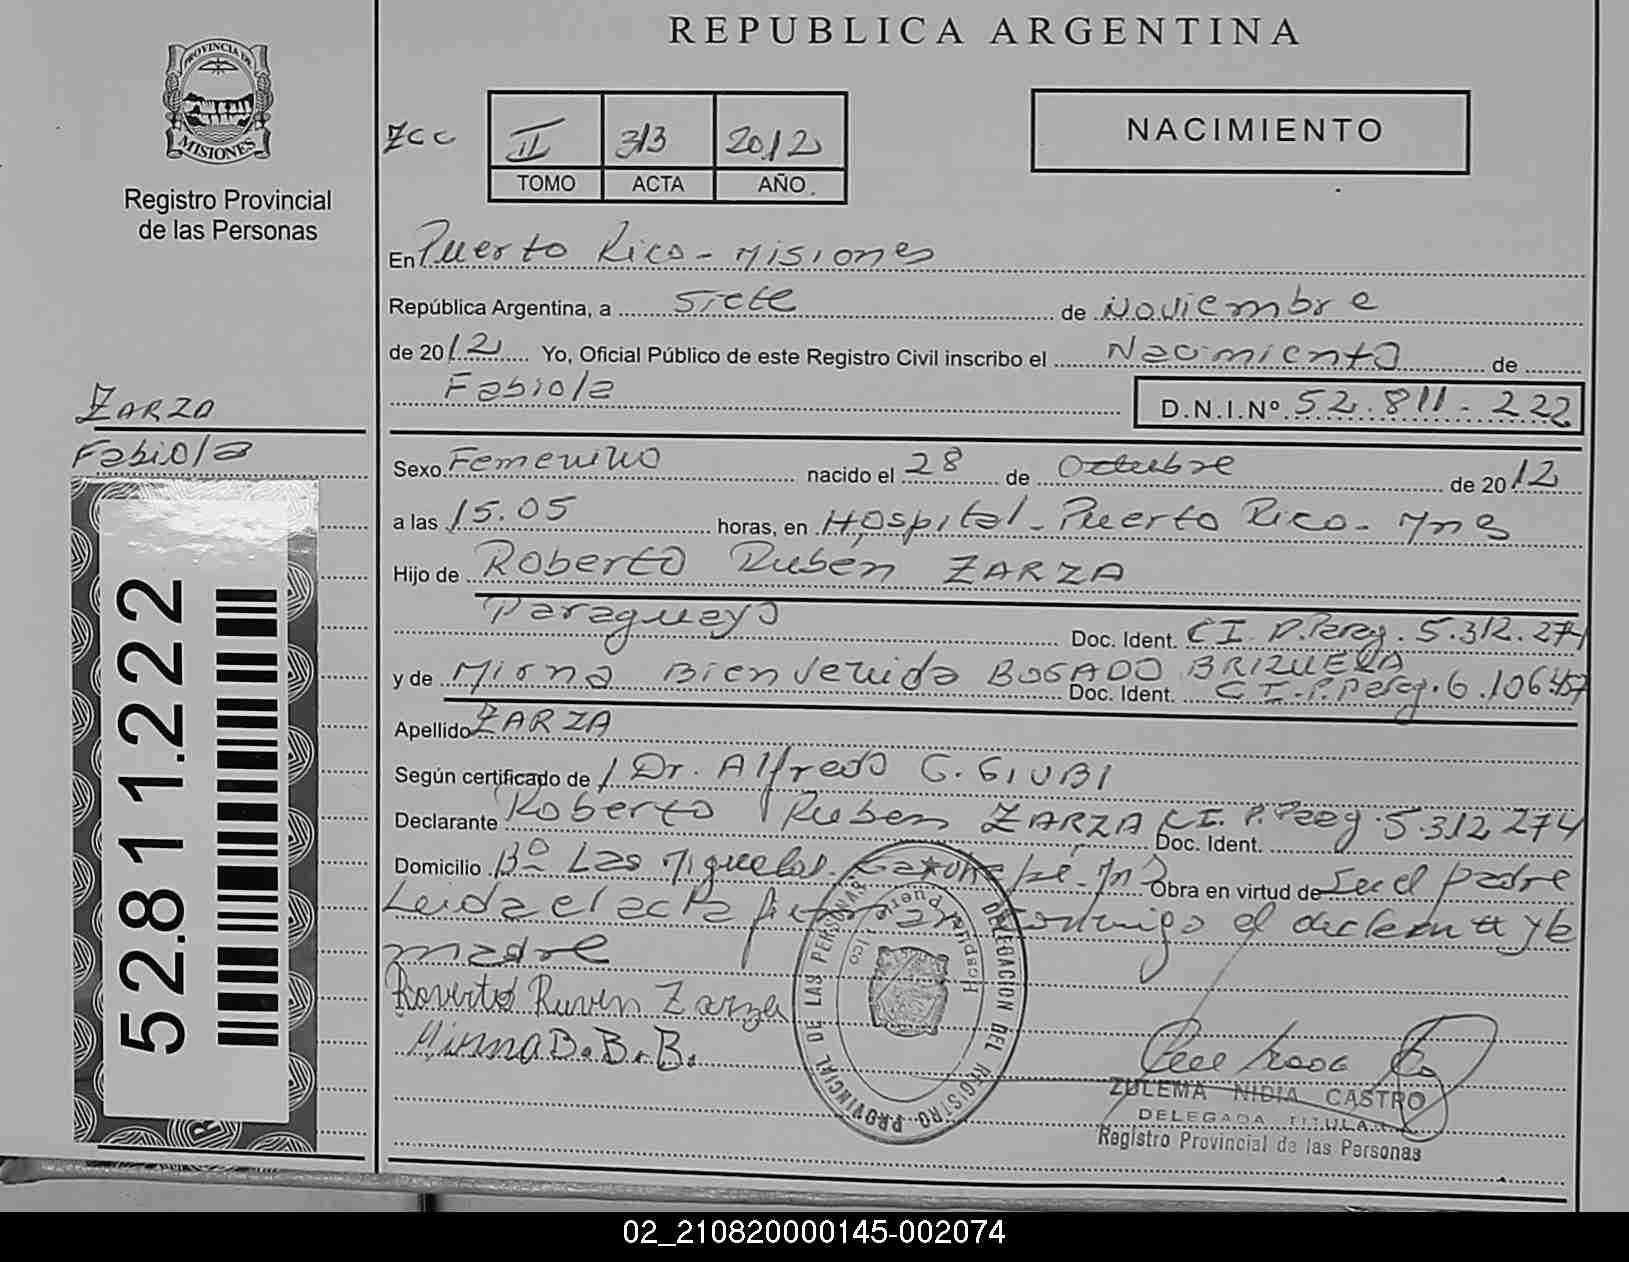 REPUBLICA ARGENTINA
PROVINCIA DE
MISIONES
Registro Provincial
de las Personas
II 313 2012
TOMO ACTA AÑO
NACIMIENTO
En Puerto Rico - Misiones
República Argentina, a Siete de Noviembre
de 2012 Yo, Oficial Público de este Registro Civil inscribo el Nacimiento de
Fabiola D.N.I.Nº 52.811.222
ZARZA
Fabiola
Sexo Femenino nacido el 28 de Octubre de 2012
a las 15.05 horas, en Hospital - Puerto Rico - Mns
Hijo de Roberto Ruben ZARZA
Paraguayo Doc. Ident. C I. P. Parag. 5.312.274
y de Mirna Bienvenida BOGADO BRIZUELA
Doc. Ident. C I. P. Parag. 6.106.457
Apellido ZARZA
Según certificado de Dr. Alfredo G. GIUBI
Declarante Roberto Ruben ZARZA Doc. Ident. C I. P. Parag. 5.312.274
Domicilio Bº Las Miguelas - Garuhapé - Mns Obra en virtud de Ser el padre
Leida el acta firman conmigo el declarante y la
madre
Roverto Ruven Zarza
Mirna B. B. B.
PROVINCIAL DE LAS PERSONAS
DELEGACION DEL REGISTRO
Hospital Puerto Rico
ZULEMA NIDIA CASTRO
DELEGADA TITULAR
Registro Provincial de las Personas
52.811.222
02_210820000145-002074